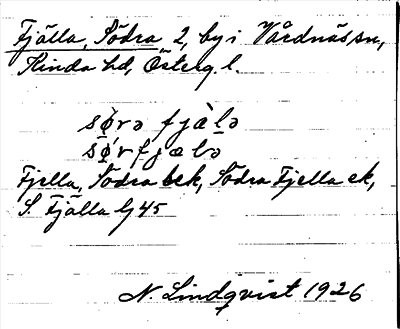 Fjälla, Södra 2, by i Vårdnäs sn,
Kinda hd, Österg. l.
sø̀rə fjàlə
sø̀rfjælə
Fjella, Södra bek, Södra Fjella ek,
S. Fjälla lj 45
N. Lindqvist 1926